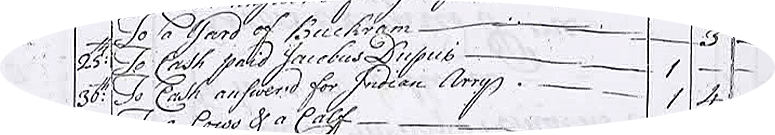 To a Yard of Buckram 3
25th To Cash paid Jacobus Dupuis 1
30th To Cash answer'd for Indian Arry 1 4
To a Cows & a Calf